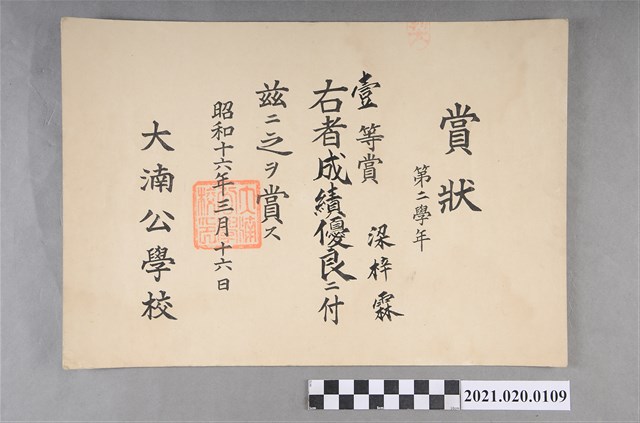 賞狀
第二學年
梁梓霖
壹等賞
右者成績優良ニ付
茲ニ之ヲ賞ス
昭和十六年三月十六日
大湳公學校
2021.020.0109